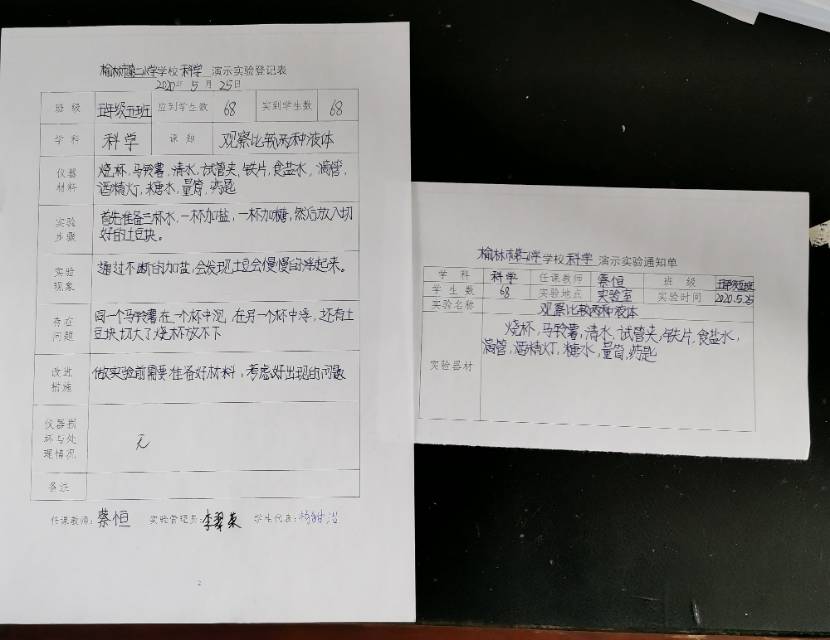 榆林市第二小学学校 科学 演示实验登记表
2020年 5 月 25日
班 级 五年级五班 应到学生数 68 实到学生数 68
学 科 科学 课 题 观察比较两种液体
仪器材料 烧杯,马铃薯,清水,试管夹,铁片,食盐水,滴管,
酒精灯,糖水,量筒,药匙
实验步骤 首先准备三杯水,一杯加盐,一杯加糖,然后放入切
好的土豆块。
实验现象 通过不断的加盐,会发现土豆会慢慢的浮起来。
存在问题 同一个马铃薯在一个杯中沉,在另一个杯中浮,还有土
豆块切大了烧杯放不下
改进措施 做实验前需要准备好材料,考虑好出现的问题
仪器损坏与处理情况 无
备注
任课教师:蔡恒 实验管理员: 学生代表:
2
榆林市第二小学学校 科学 演示实验通知单
学 科 科学 任课教师 蔡恒 班 级 五年级五班
学 生 数 68 实验地点 实验室 实验时间 2020.5.25
实验名称 观察比较两种液体
实验器材 烧杯,马铃薯,清水,试管夹,铁片,食盐水,
滴管,酒精灯,糖水,量筒,药匙